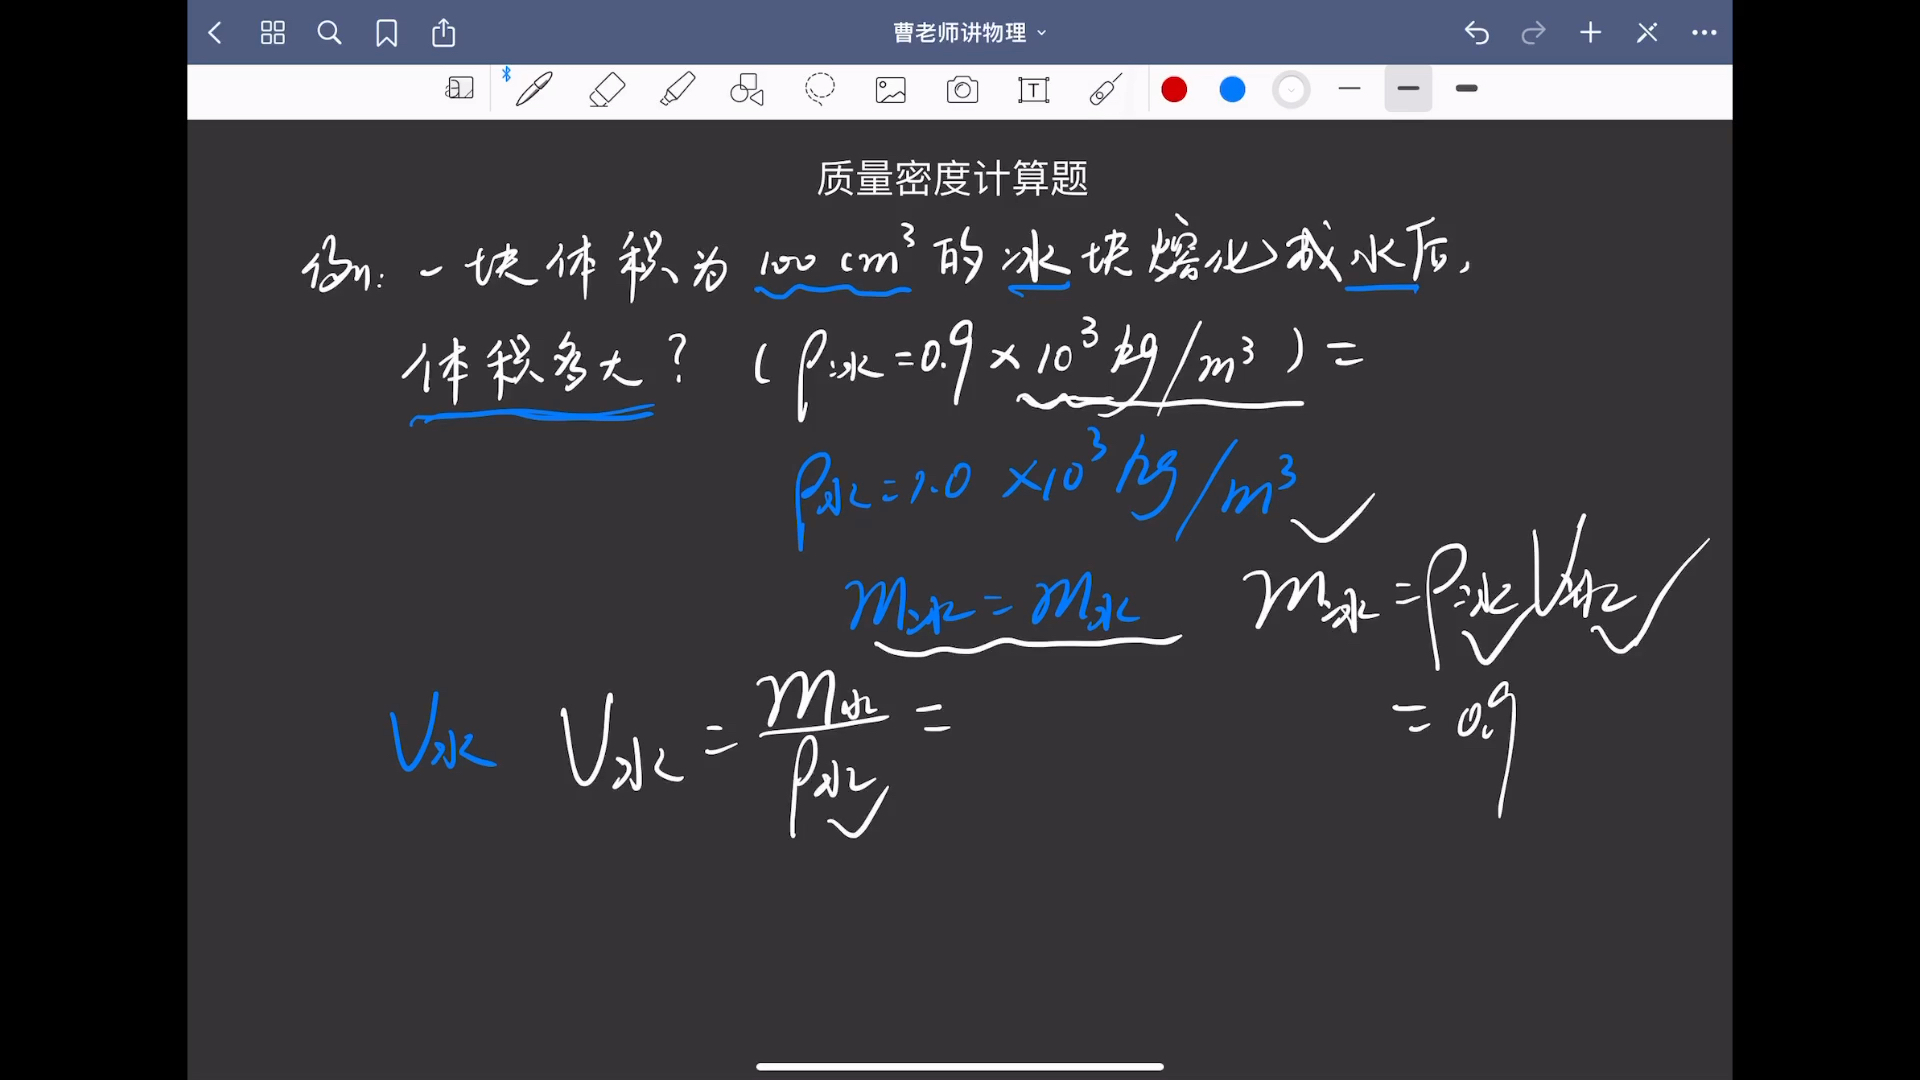 曹老师讲物理
质量密度计算题
例:一块体积为100cm³的冰块熔化成水后,
体积多大?(ρ冰=0.9×10³kg/m³)=
ρ水=1.0×10³kg/m³
m冰=m水
m冰=ρ冰V冰
=0.9
V水
V水=m水/ρ水=